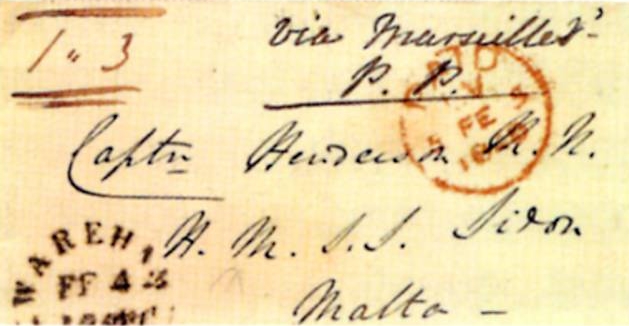 1 " 3
via Marseilles
P. P.
PAID
FE
Captn Henderson R. N.
H. M. S. S. Sidon
Malta —
WAREHA
FE 4